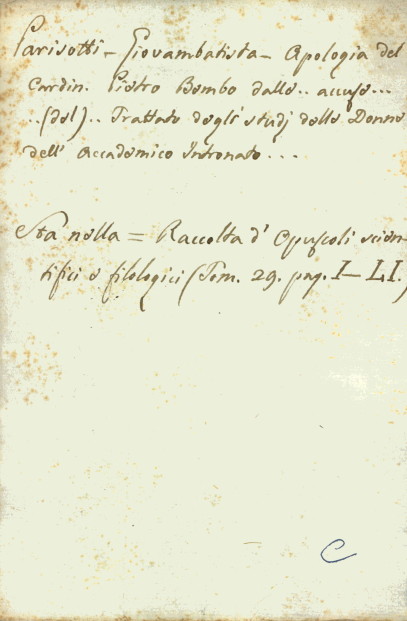 Parisotti – Giovambatista – Apologia del
Cardin. Pietro Bembo dalle .. accuse ...
.. (del) .. Trattato degli studj delle Donne
dell' Accademico Intronato ...
Sta nella = Raccolta d' Opuscoli scien-
tifici e filologici (Tom. 29. pag. I – LI.)
C